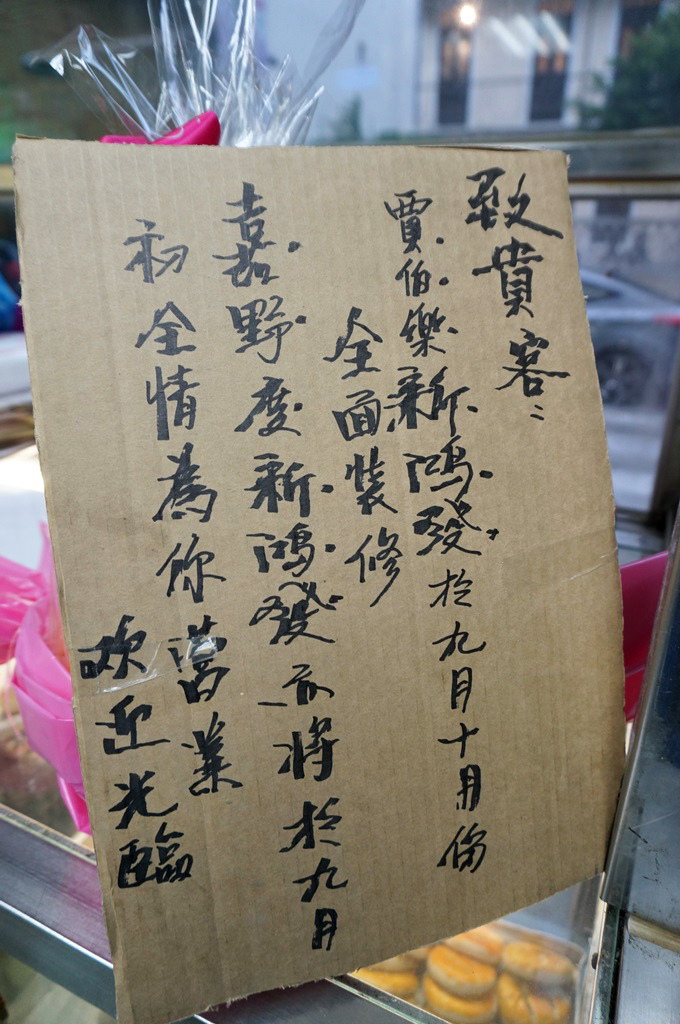 致貴客：
賈伯樂新鴻發於九月十月份
全面裝修
嘉野度新鴻發而將於九月
初全情為你營業
歡迎光臨